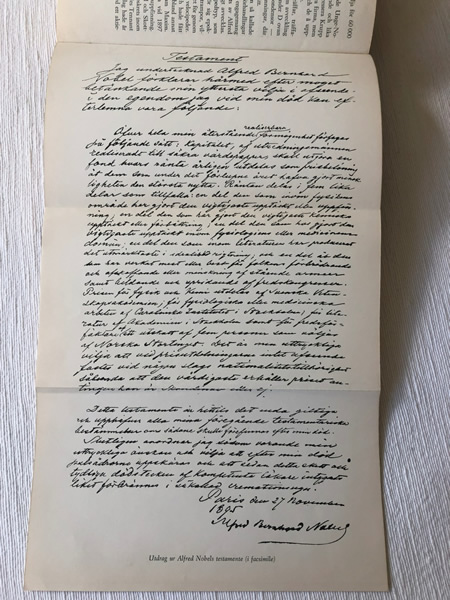 Testament
Jag undertecknad Alfred Bernhard
Nobel förklarar härmed efter moget
betänkande min yttersta vilja i afseende
å den egendom jag vid min död kan ef-
terlemna vara följande:
Öfver hela min återstående realiserbara förmögenhet förfogas
på följande sätt: Kapitalet, af utredningsmännen
realiseradt till säkra värdepapper, skall utgöra en
fond hvars ränta årligen utdelas som prisbelöning
åt dem som under det förlupne året hafva gjort mensk-
ligheten den största nytta. Räntan delas i fem lika
delar som tillfalla: en del den som inom fysikens
område har gjort den vigtigaste upptäckt eller uppfin-
ning; en del den som har gjort den vigtigaste kemiska
upptäckt eller förbättring; en del den som har gjort den
vigtigaste upptäckt inom fysiologiens eller medicinens
domän; en del den som inom literaturen har producerat
det utmärktaste i idealisk rigtning; och en del åt den
som har verkat mest eller best för folkens förbrödrande
och afskaffande eller minskning af stående armeer
samt bildande och spridande af fredskongresser.
Prisen för fysik och kemi utdelas af Svenska Veten-
skapsakademien; för fysiologiska eller medicinska
arbeten af Carolinska Institutet i Stockholm; för lit-
eratur af Akademien i Stockholm samt för fredsför-
fäktare af ett utskott af fem personer som väljas
af Norska Stortinget. Det är min uttryckliga
vilja att vid prisutdelningarne intet afseende
fästes vid någon slags nationalitetstillhörighet
sålunda att den värdigaste erhåller priset an-
tingen han är Skandinav eller ej.
Detta testamente är hittills det enda giltiga
och upphäfver alla mina föregående testamentariska
bestämmelser om sådana skulle förefinnas efter min död.
Slutligen anordnar jag såsom varande min
uttryckliga önskan och vilja att efter min död
pulsådrorna uppskäras och att sedan detta skett och
tydliga dödstecken af kompetenta läkare intygats
liket förbrännes i såkallad cremationsugn.
Paris den 27 November
1895
Alfred Bernhard Nobel
Utdrag ur Alfred Nobels testamente (i facsimile)